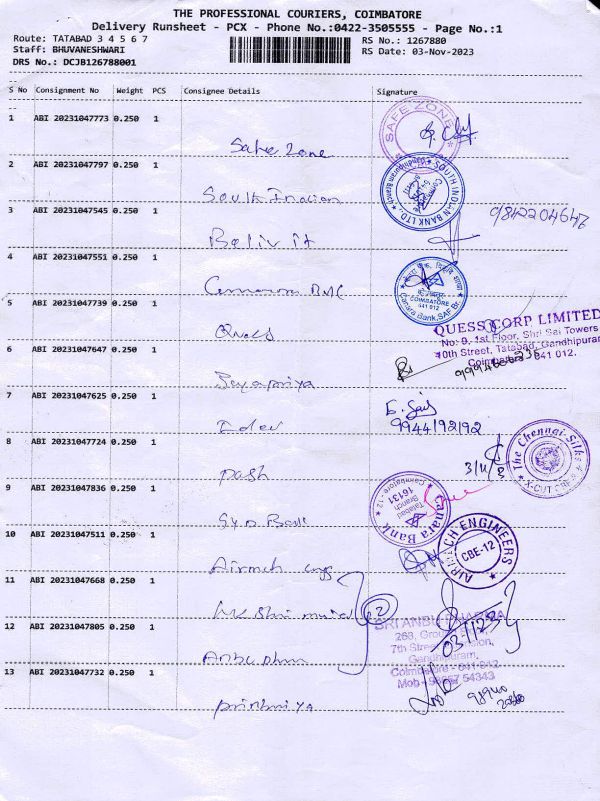 THE PROFESSIONAL COURIERS, COIMBATORE
Delivery Runsheet - PCX - Phone No.:0422-3505555 - Page No.:1
Route: TATABAD 3 4 5 6 7
Staff: BHUVANESHWARI
DRS No.: DCJB126788001
RS No.: 1267880
RS Date: 03-Nov-2023
S No Consignment No Weight PCS Consignee Details Signature
1 ABI 20231047773 0.250 1 Safe Zone
SAFE ZONE
2 ABI 20231047797 0.250 1 South Indian
SOUTH INDIAN BANK LTD.
3 ABI 20231047545 0.250 1 Beliv it
9842204646
4 ABI 20231047551 0.250 1
COIMBATORE
641 012
Canara Bank, SAF Br.
5 ABI 20231047739 0.250 1 Ques
QUESS CORP LIMITED
No: 9, 1st Floor, Shri Sai Towers
10th Street, Tatabad, Gandhipuram
Coimbatore 641 012.
6 ABI 20231047647 0.250 1 Jayapriya
7 ABI 20231047625 0.250 1
9944192192
8 ABI 20231047724 0.250 1 Dash
The Chennai Silks
9 ABI 20231047836 0.250 1 Bank
Canara Bank
Tatabad
Branch
16131
Coimbatore - 12
10 ABI 20231047511 0.250 1 Airmech
AIRMECH ENGINEERS
CBE-12
11 ABI 20231047668 0.250 1
2
12 ABI 20231047805 0.250 1
SRI ANBU DHARMA
7th Street Extension
Gandhipuram,
Coimbatore - 641 012
13 ABI 20231047732 0.250 1